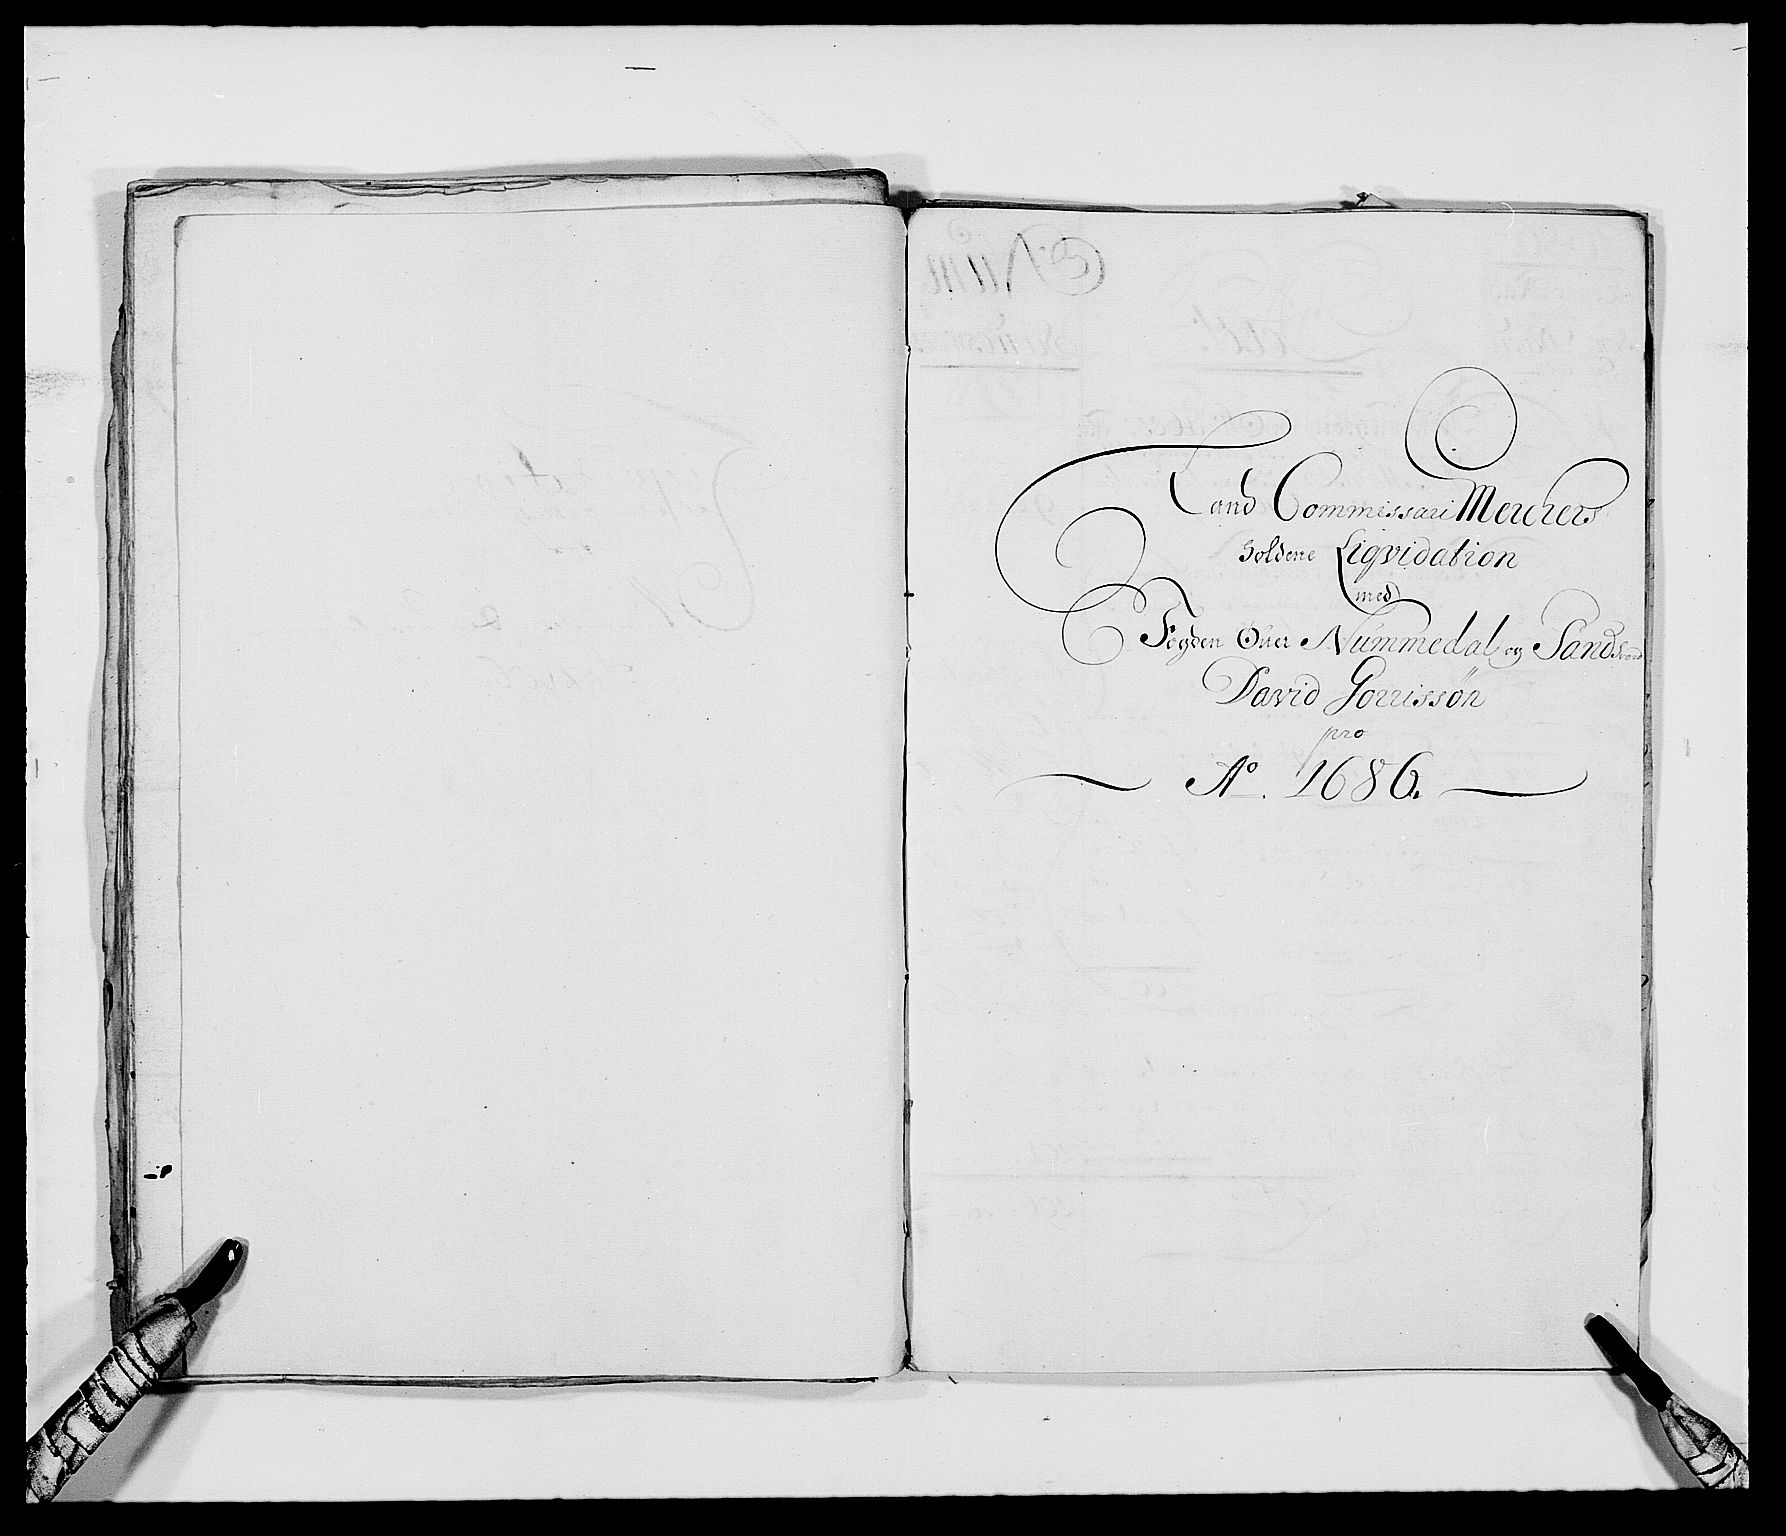 Land Commissari Meurers
holdene Liqvidation
med
Fogden Ofuer Nummedal og Sandsverd
David Gorrissön
pro
Aº. 1686.